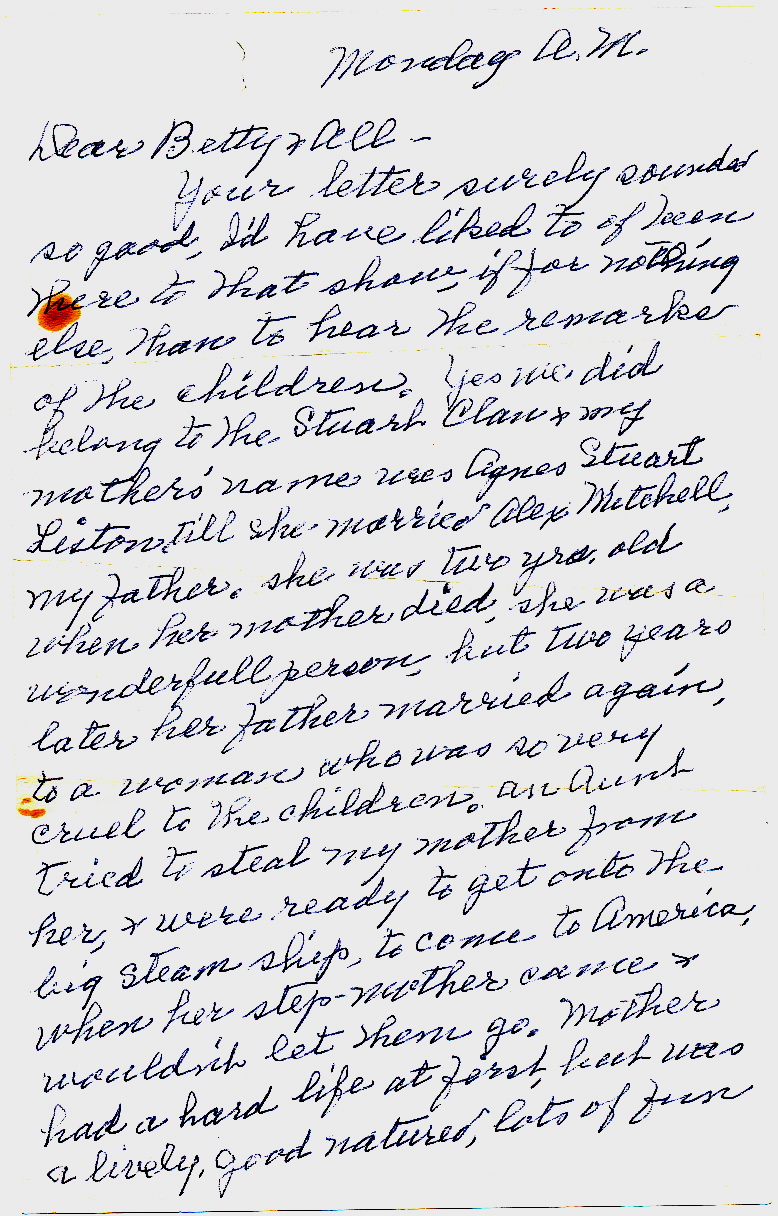 Monday A.M.
Dear Betty & All –
Your letter surely sounded
so good, I'd have liked to of been
there to that show, if for nothing
else, than to hear the remarks
of the children. Yes we did
belong to the Stuart Clan & my
mothers' name was Agnes Stuart
Liston, till she married Alex Mitchell,
my father. she was two yrs. old
when her mother died, she was a
wonderfull person, but two years
later her father married again,
to a woman who was so very
cruel to the children. an Aunt
tried to steal my mother from
her, & were ready to get onto the
big steam ship, to come to America,
when her step-mother came &
wouldn't let them go. Mother
had a hard life at first, but was
a lively, good natured, lots of fun